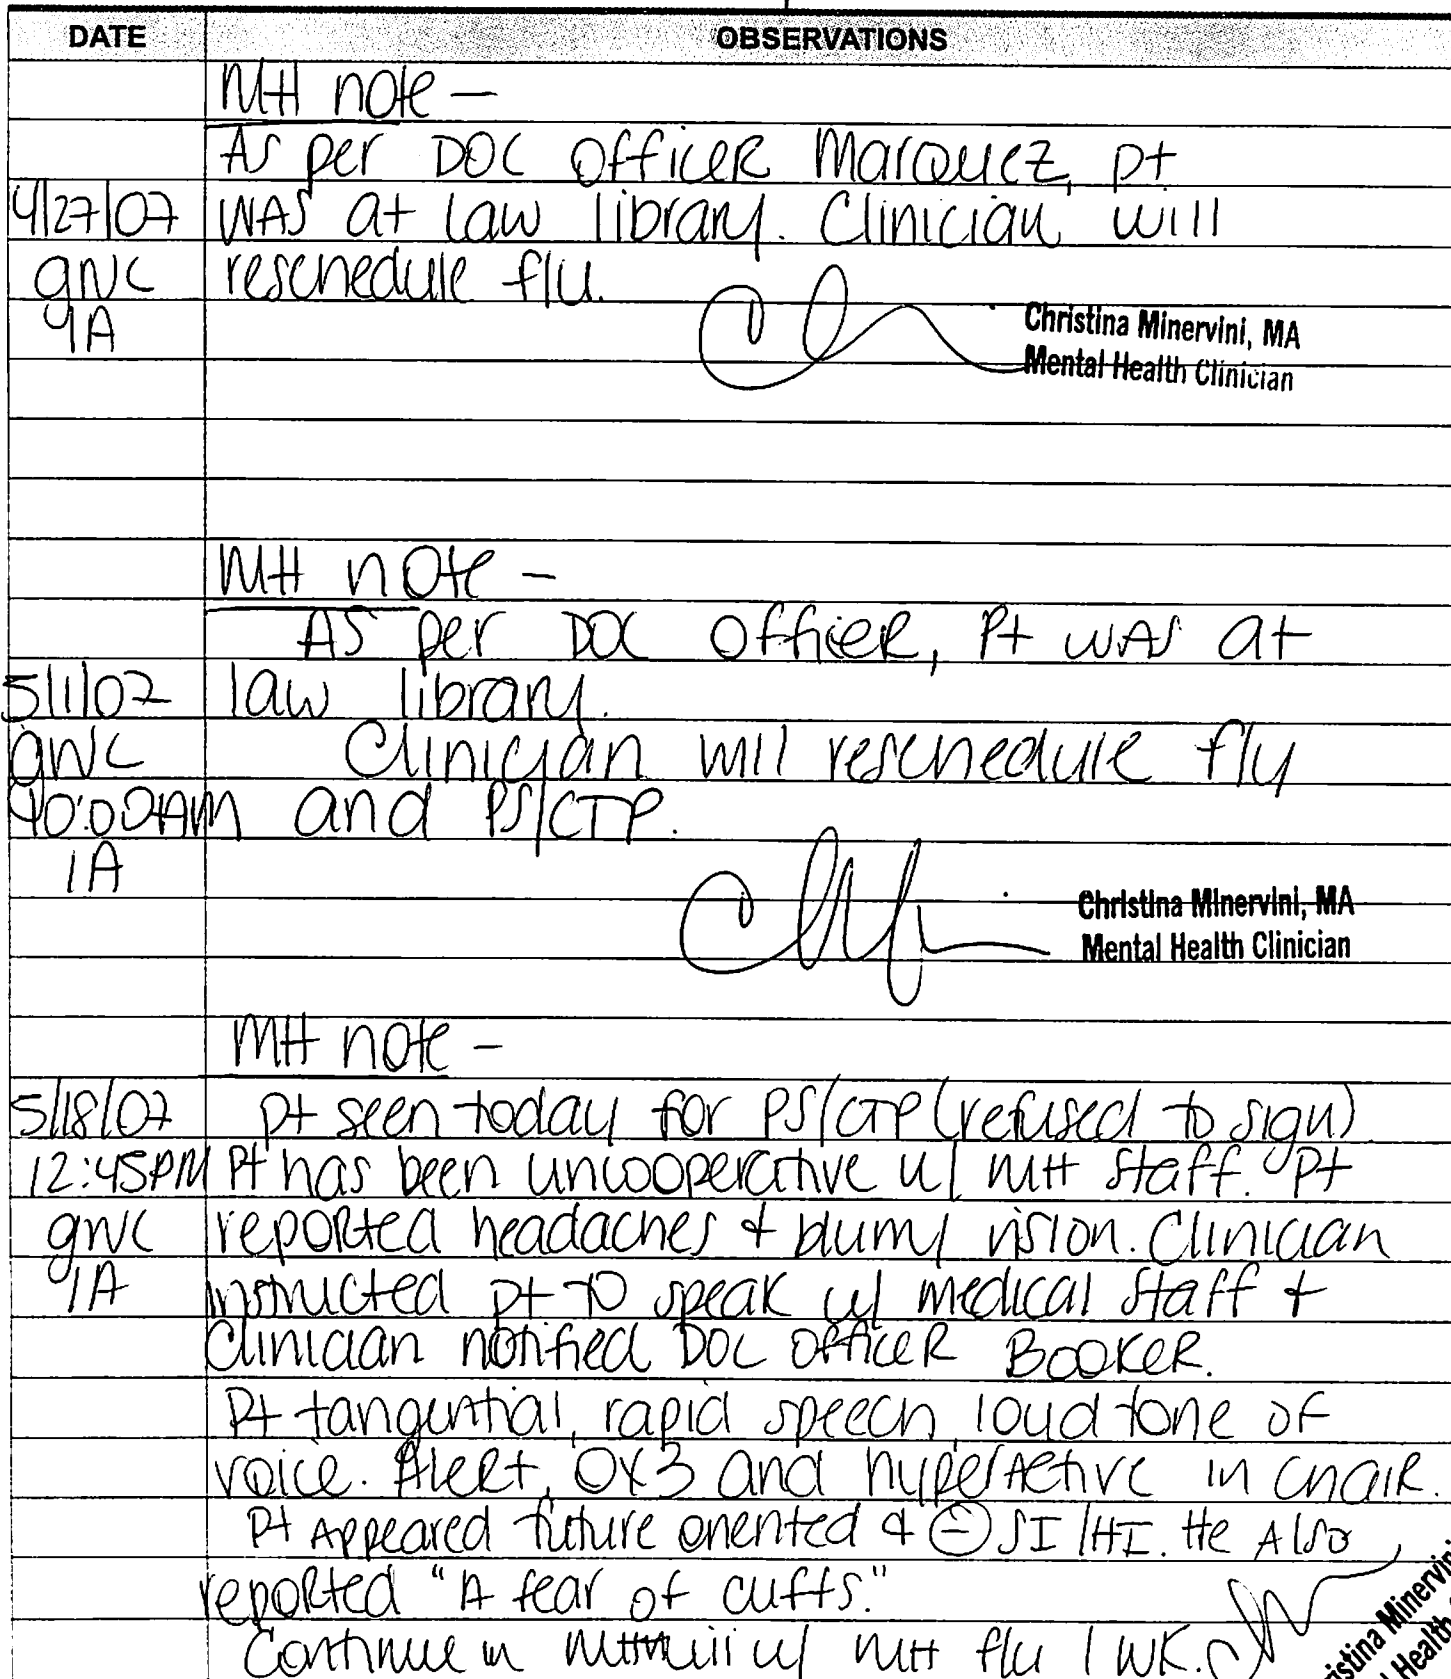 DATE OBSERVATIONS
MH note -
As per DOC Officer Marquez, pt
4/27/07 was at law library. Clinician will
GNC reschedule f/u.
9A
Christina Minervini, MA
Mental Health Clinician
MH note -
As per DOC officer, Pt was at
5/1/07 law library.
GNC Clinician will reschedule f/u
10:00AM and PS/CTP.
1A
Christina Minervini, MA
Mental Health Clinician
MH note -
5/18/07 pt seen today for PS/CTP (refused to sign)
12:45PM Pt has been uncooperative w/ MH staff. Pt
GNC reported headaches + blurry vision. Clinician
1A instructed pt to speak w/ medical staff +
Clinician notified DOC officer Booker.
Pt tangential, rapid speech, loud tone of
voice. Alert, OX3 and hyperactive in chair.
Pt Appeared future oriented + ⊖ SI/HI. He Also
reported "A fear of cuffs."
Continue in w/ MH f/u 1 WK.
Christina Minervini
Health